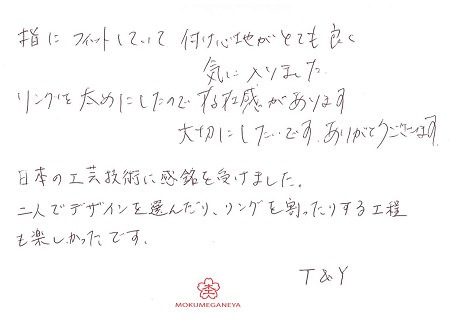 指にフィットしていて 付け心地がとても良く
気に入りました
リングを太めにしたので存在感があります
大切にしたいです。ありがとうございます
日本の工芸技術に感銘を受けました。
二人でデザインを選んだり、リングを割ったりする工程
も楽しかったです。
T & Y
MOKUMEGANEYA